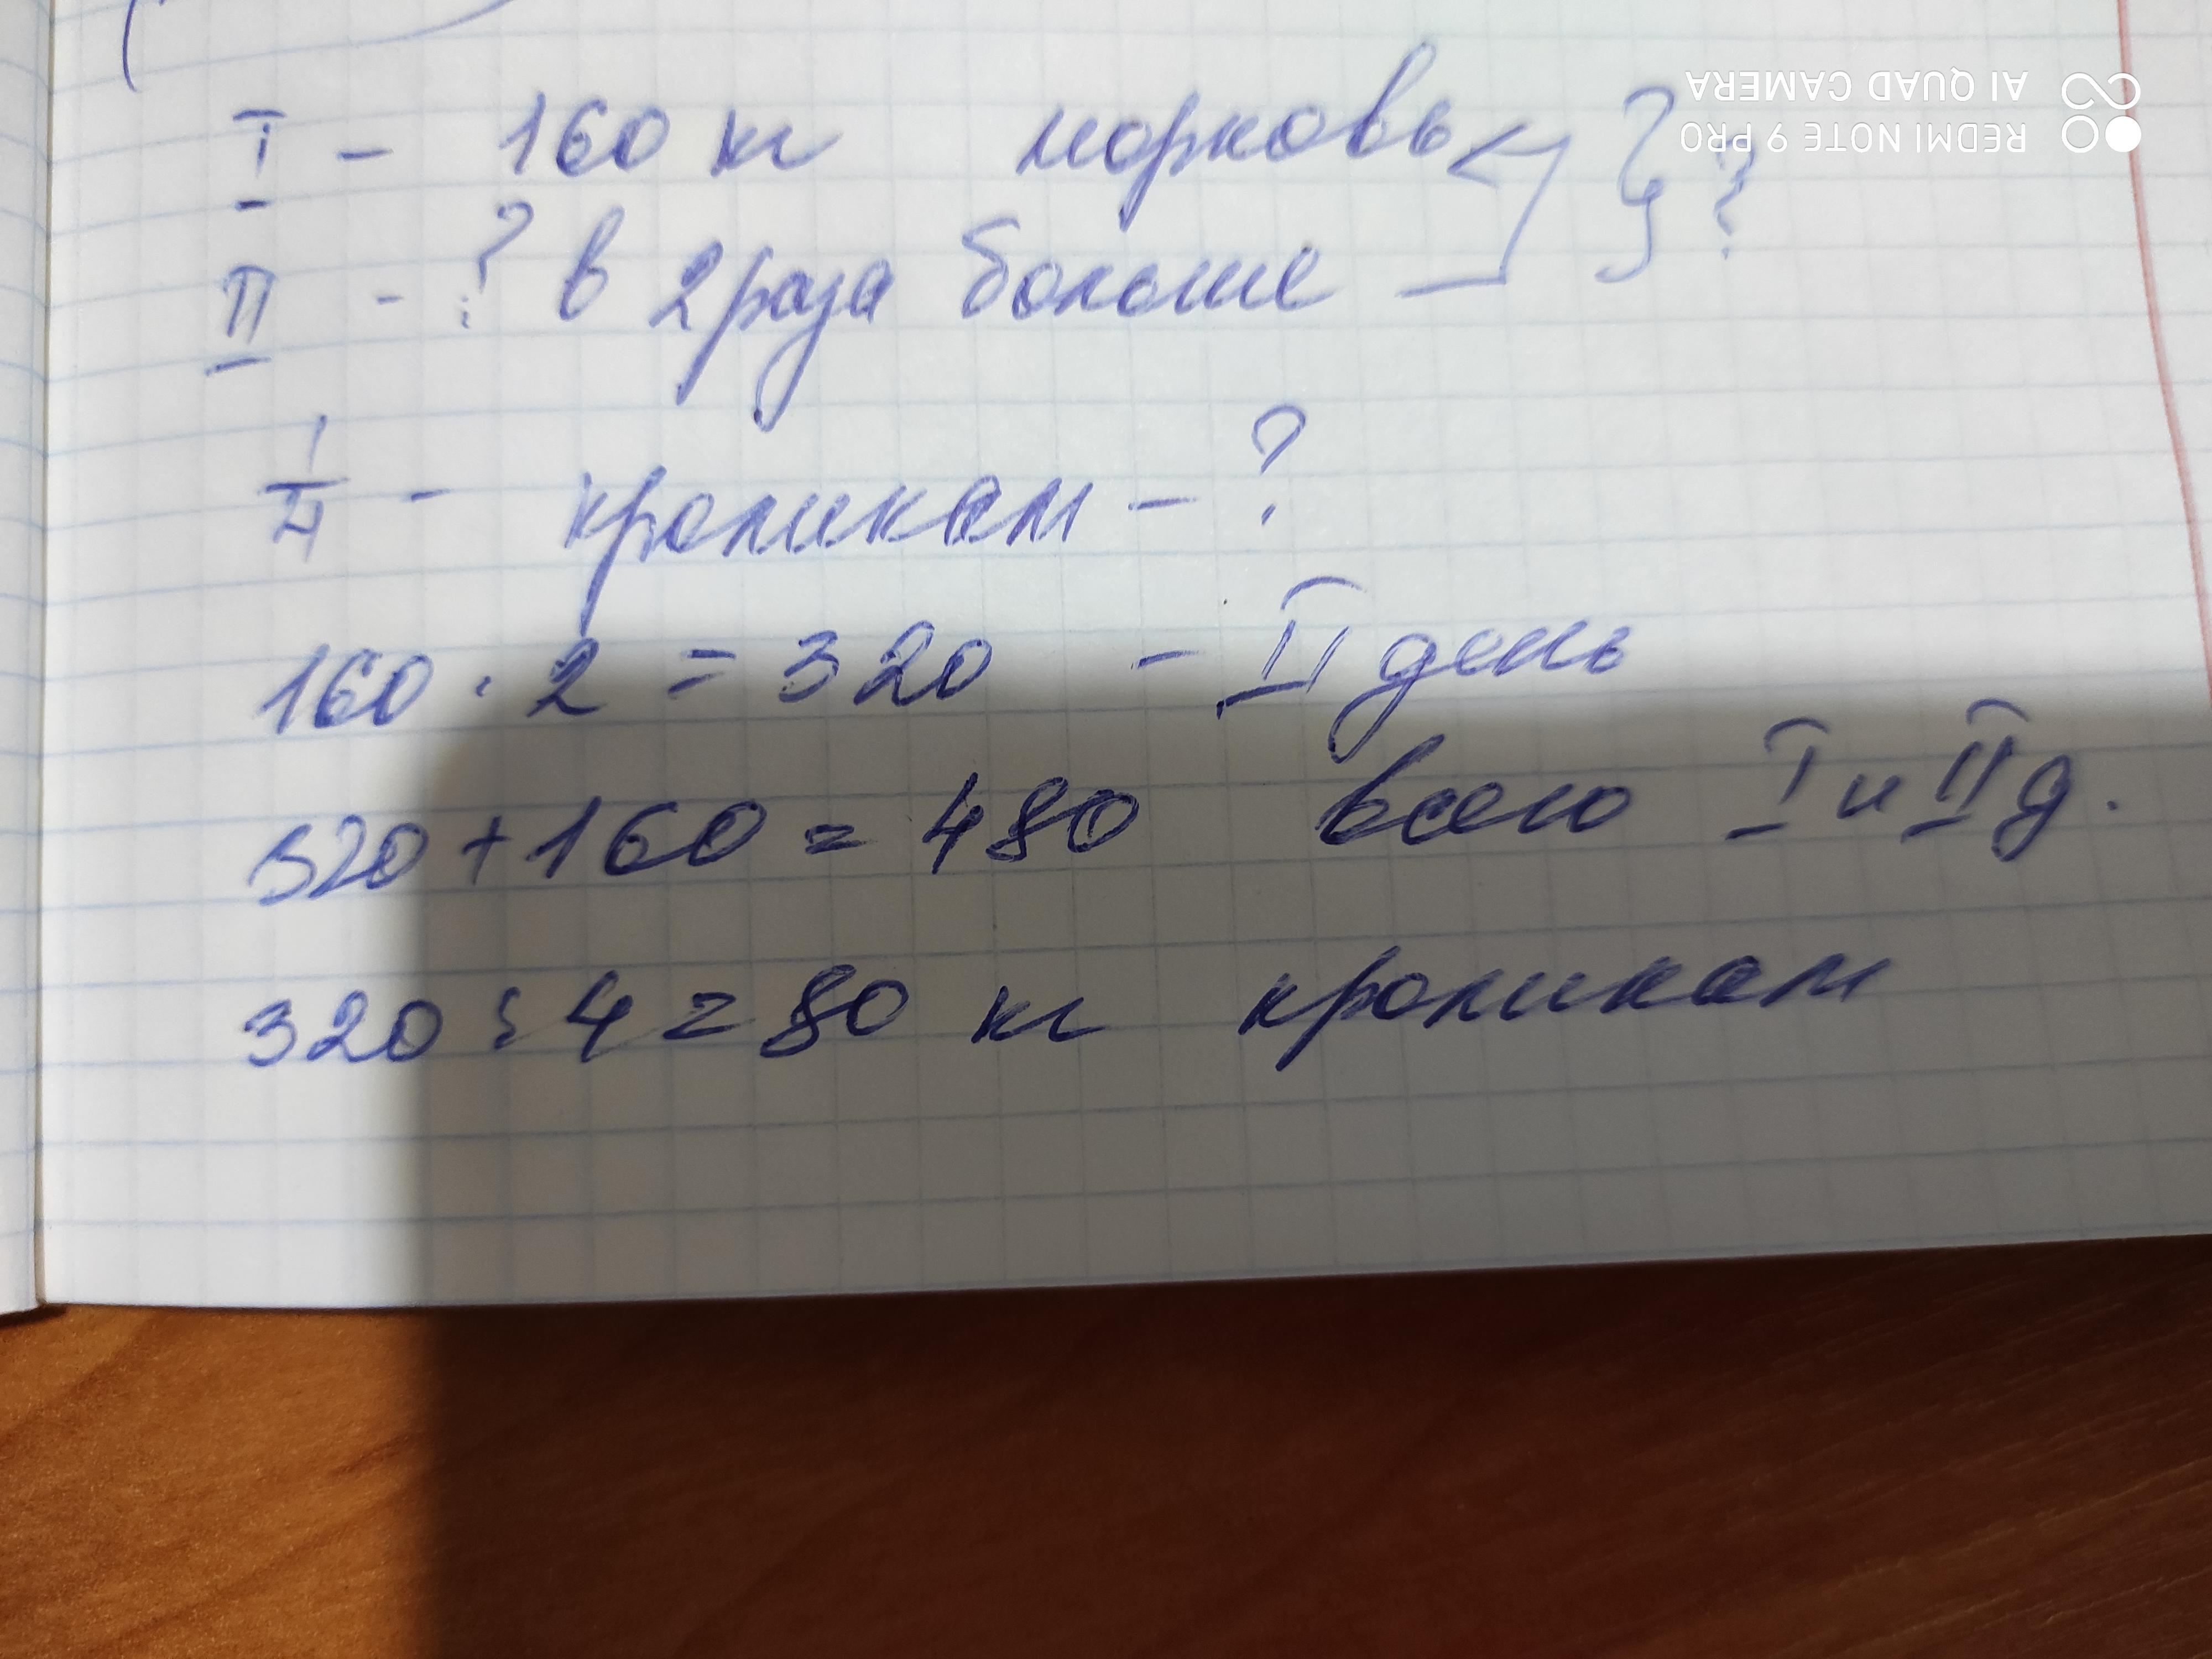 I - 160 кг морковь } ?
II - ? в 2 раза больше
1/4 - кроликам - ?
160 · 2 = 320 - II день
320 + 160 = 480 всего I и II д.
320 : 4 = 80 кг кроликам
REDMI NOTE 9 PRO
AI QUAD CAMERA